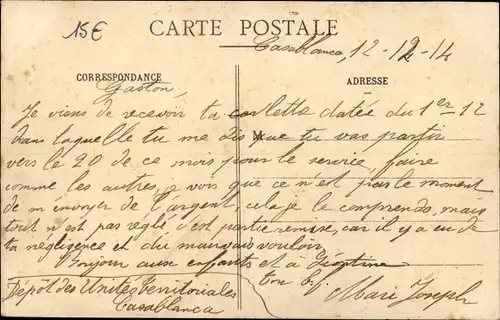 15€
CARTE POSTALE
Casablanca, 12-12-14
CORRESPONDANCE
ADRESSE
Gaston,
Je viens de recevoir ta carte lettre datée du 1er 12
dans laquelle tu me dis que tu vas partir
vers le 20 de ce mois pour le service, faire
comme les autres, je vois que ce n'est pas le moment
de m'envoyer de l'argent, cela je le comprends, mais
tout n'est pas réglé, c'est partie remise, car il y a eu de
ta négligence et du mauvais vouloir
Bonjour aux enfants et à
ton
Marie Joseph
Dépôt des Unités territoriales
Casablanca